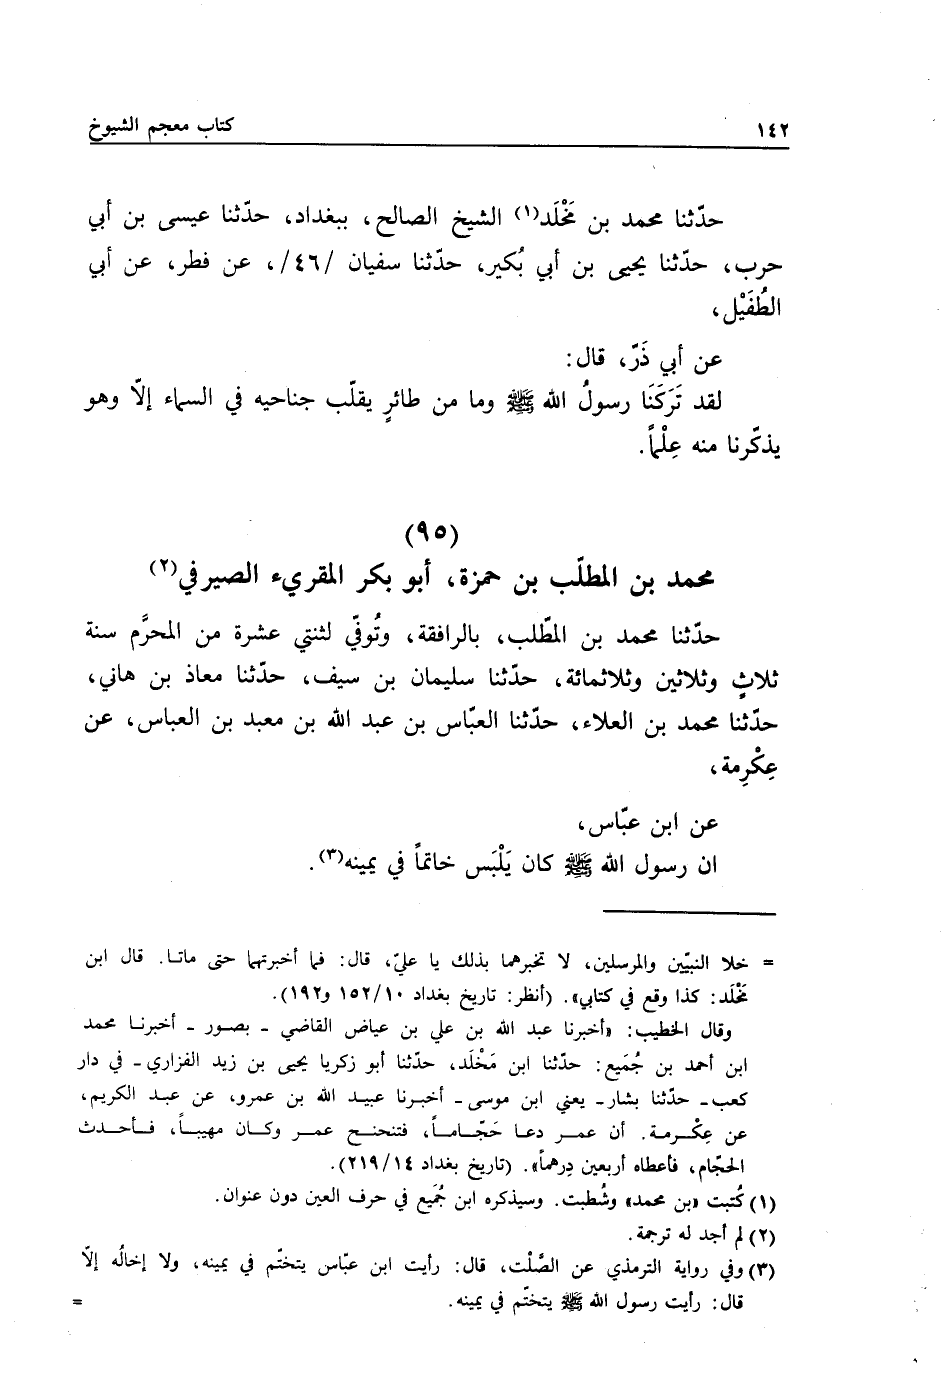 ١٤٢ كتاب معجم الشيوخ
حدّثنا محمد بن مَخْلَد(١) الشيخ الصالح، ببغداد، حدّثنا عيسى بن أبي
حرب، حدّثنا يحيى بن أبي بُكير، حدّثنا سفيان /٤٦/، عن فطر، عن أبي
الطُفَيْل،
عن أبي ذَرّ، قال:
لقد تَرَكَنَا رسولُ الله ﷺ وما من طائرٍ يقلّب جناحيه في السماء إلّا وهو
يذكّرنا منه عِلْماً.
(٩٥)
محمد بن المطلّب بن حمزة، أبو بكر المقريء الصيرفي(٢)
حدّثنا محمد بن المطّلب، بالرافقة، وتُوفّي لثنتي عشرة من المحرَّم سنة
ثلاثٍ وثلاثين وثلاثمائة، حدّثنا سليمان بن سيف، حدّثنا معاذ بن هاني،
حدّثنا محمد بن العلاء، حدّثنا العبّاس بن عبد الله بن معبد بن العباس، عن
عِكْرِمة،
عن ابن عبّاس،
ان رسول الله ﷺ كان يَلْبَس خاتماً في يمينه(٣).
= خلا النبيّين والمرسلين، لا تخبرهما بذلك يا عليّ، قال: فما أخبرتهما حتى ماتا. قال ابن
مَخْلَد: كذا وقع في كتابي». (أنظر: تاريخ بغداد ١٥٢/١٠ و١٩٢).
وقال الخطيب: «أخبرنا عبد الله بن علي بن عياض القاضي - بصور - أخبرنا محمد
ابن أحمد بن جُمَيع: حدّثنا ابن مَخْلَد، حدّثنا أبو زكريا يحيى بن زيد الفزاري - في دار
كعب - حدّثنا بشار - يعني ابن موسى - أخبرنا عبيد الله بن عمرو، عن عبد الكريم،
عن عِكْرمة. أن عمر دعا حَجّاماً، فتنحنح عمر وكان مهيباً، فأحدث
الحجّام، فأعطاه أربعين دِرهماً». (تاريخ بغداد ٢١٩/١٤).
(١) كُتبت «بن محمد» وشُطبت. وسيذكره ابن جُمَيع في حرف العين دون عنوان.
(٢) لم أجد له ترجمة.
(٣) وفي رواية الترمذي عن الصَّلْت، قال: رأيت ابن عبّاس يتختّم في يمينه، ولا إخالُه إلّا
قال: رأيت رسول الله ﷺ يتختّم في يمينه. =